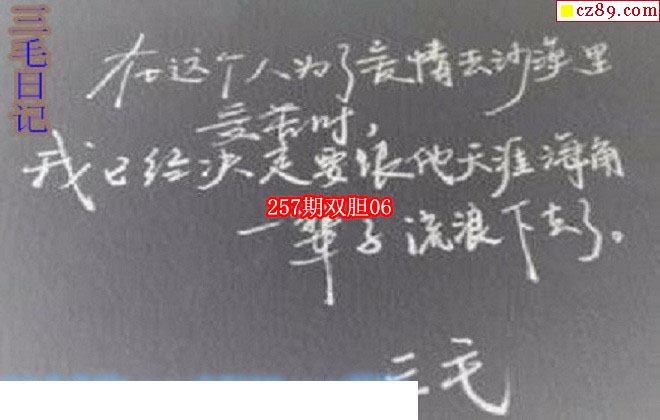 cz89.com
三毛日记
在这个人为了爱情去沙漠里
受苦时,
我已经决定要跟他天涯海角
257期双胆06
一辈子流浪下去了。
三毛